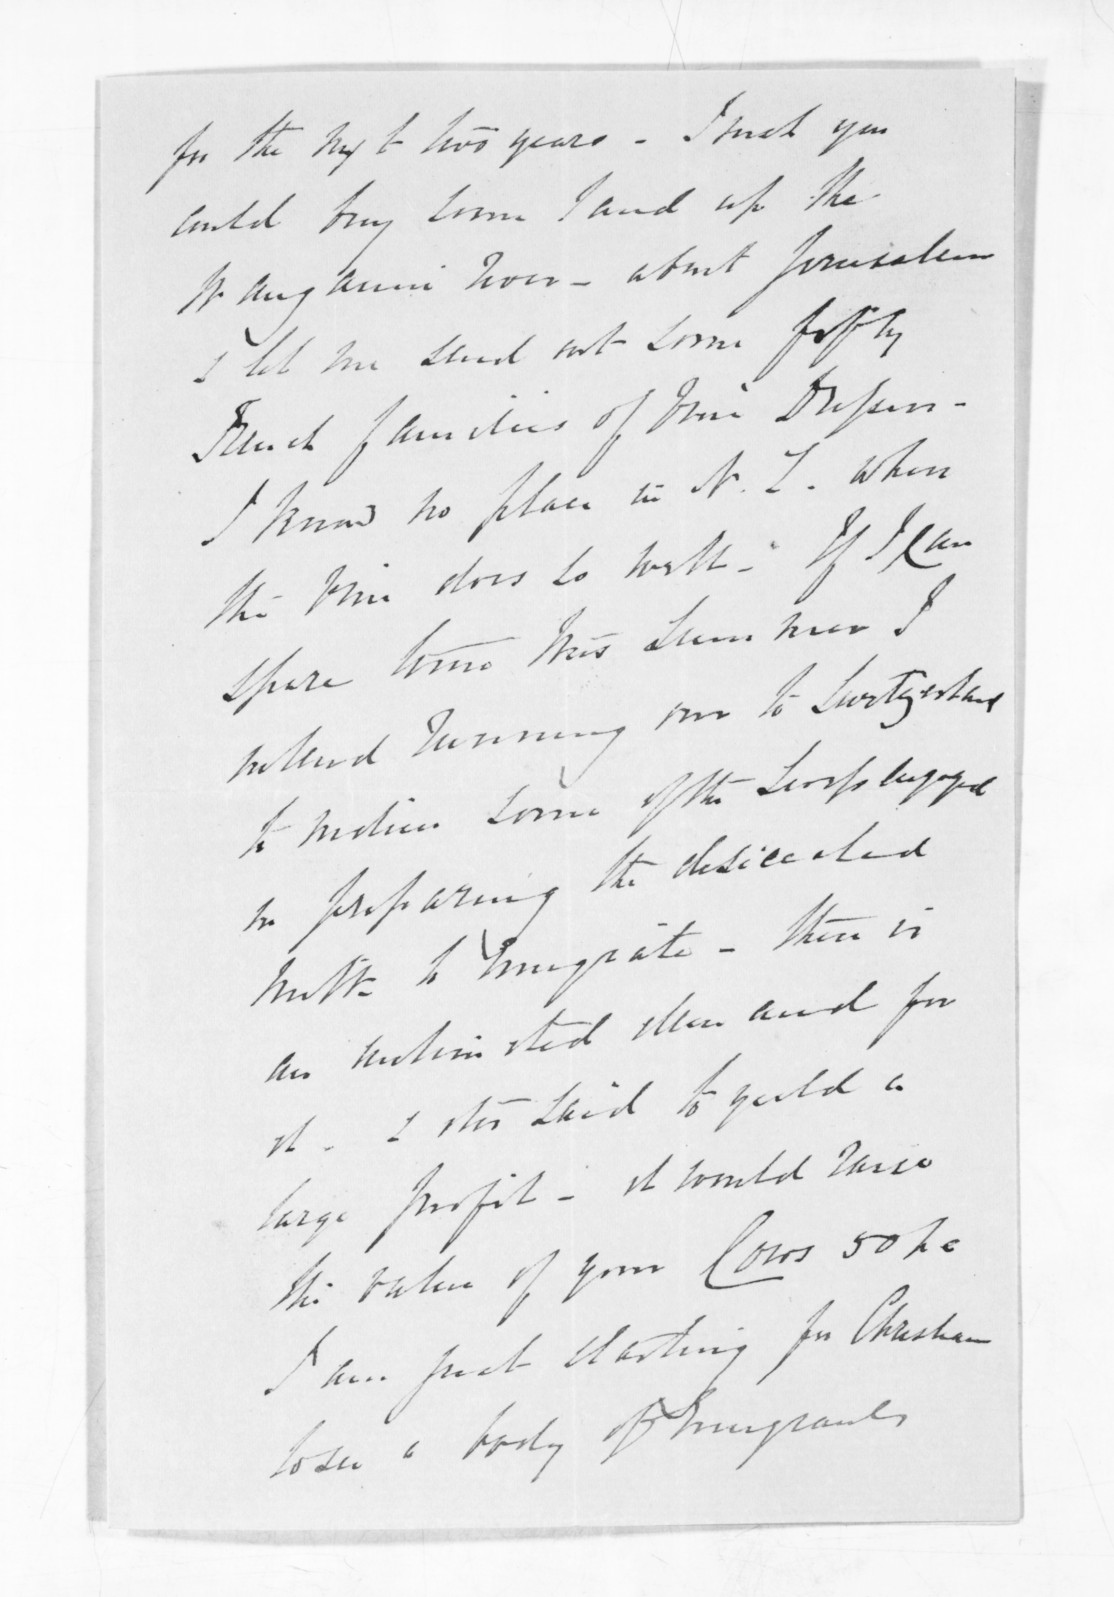 for the next two years - I wish you
could buy some land up the
Wanganui River - about Jerusalem
& let me send out some fifty
French families of Vine Dressers -
I know no place in N. Z. where
the Vine does so well - If I can
spare time this summer I
intend running over to Switzerland
to induce some of the Swiss engaged
in preparing the desiccated
milk to Emigrate - there is
an unlimited demand for
it - & it is said to yield a
large profit - it would raise
the value of your Cows 50 pc
I am just starting for Christian
to see a body of Emigrants